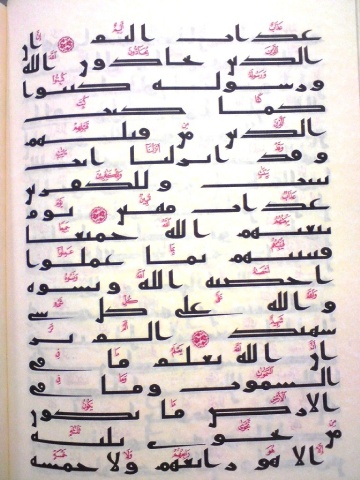 عذاب اليم ۝ ان
الذين يحادون الله
ورسوله كبتوا
كما كبت
الذين من قبلهم
وقد انزلنا ايت
بينت وللكفرين
عذاب مهين ۝ يوم
يبعثهم الله جميعا
فينبئهم بما عملوا
احصيه الله ونسوه
والله على كل شى
شهيد ۝ الم تر
ان الله يعلم ما فى
السموت وما فى
الارض ما يكون
من نجوى ثلثة
الا هو رابعهم ولا خمسة